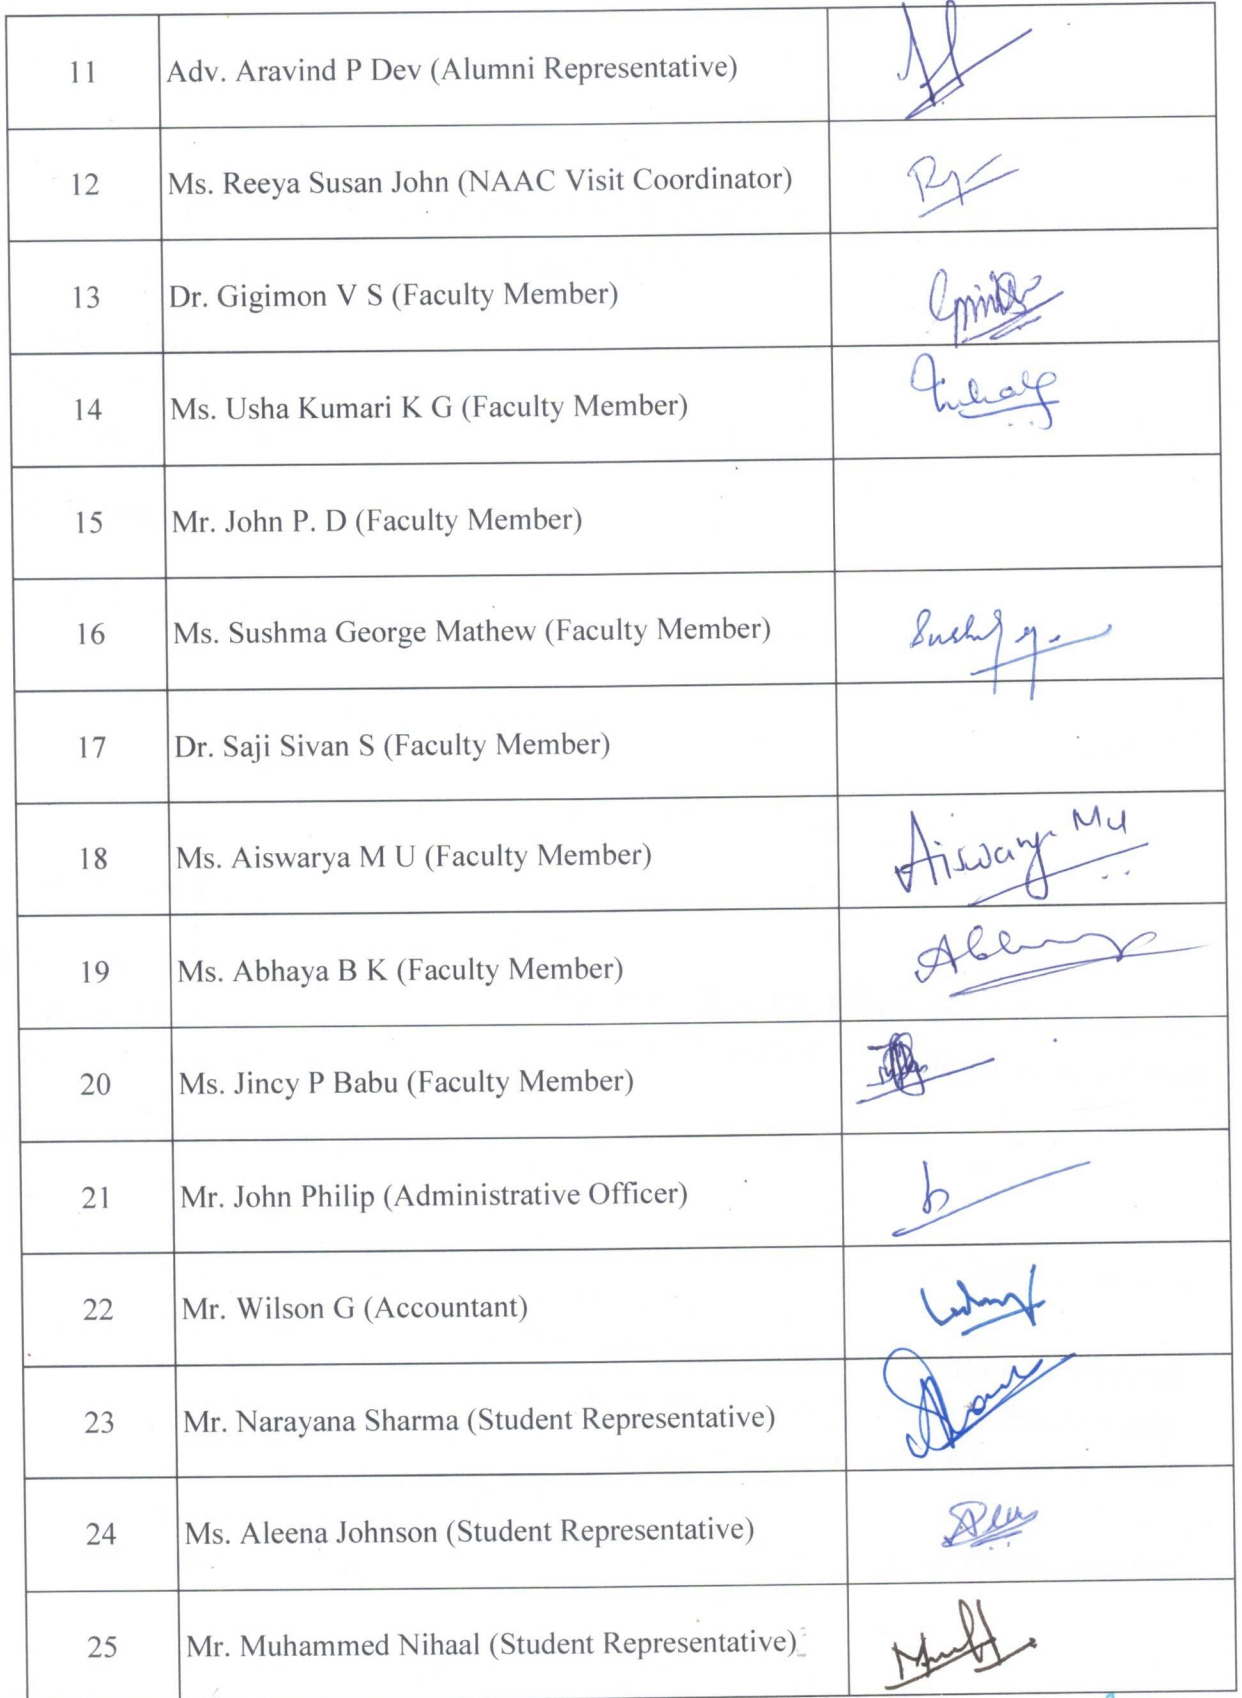 11 Adv. Aravind P Dev (Alumni Representative)
12 Ms. Reeya Susan John (NAAC Visit Coordinator)
13 Dr. Gigimon V S (Faculty Member)
14 Ms. Usha Kumari K G (Faculty Member)
15 Mr. John P. D (Faculty Member)
16 Ms. Sushma George Mathew (Faculty Member)
17 Dr. Saji Sivan S (Faculty Member)
18 Ms. Aiswarya M U (Faculty Member) Aiswarya MU
19 Ms. Abhaya B K (Faculty Member)
20 Ms. Jincy P Babu (Faculty Member)
21 Mr. John Philip (Administrative Officer)
22 Mr. Wilson G (Accountant)
23 Mr. Narayana Sharma (Student Representative)
24 Ms. Aleena Johnson (Student Representative)
25 Mr. Muhammed Nihaal (Student Representative)